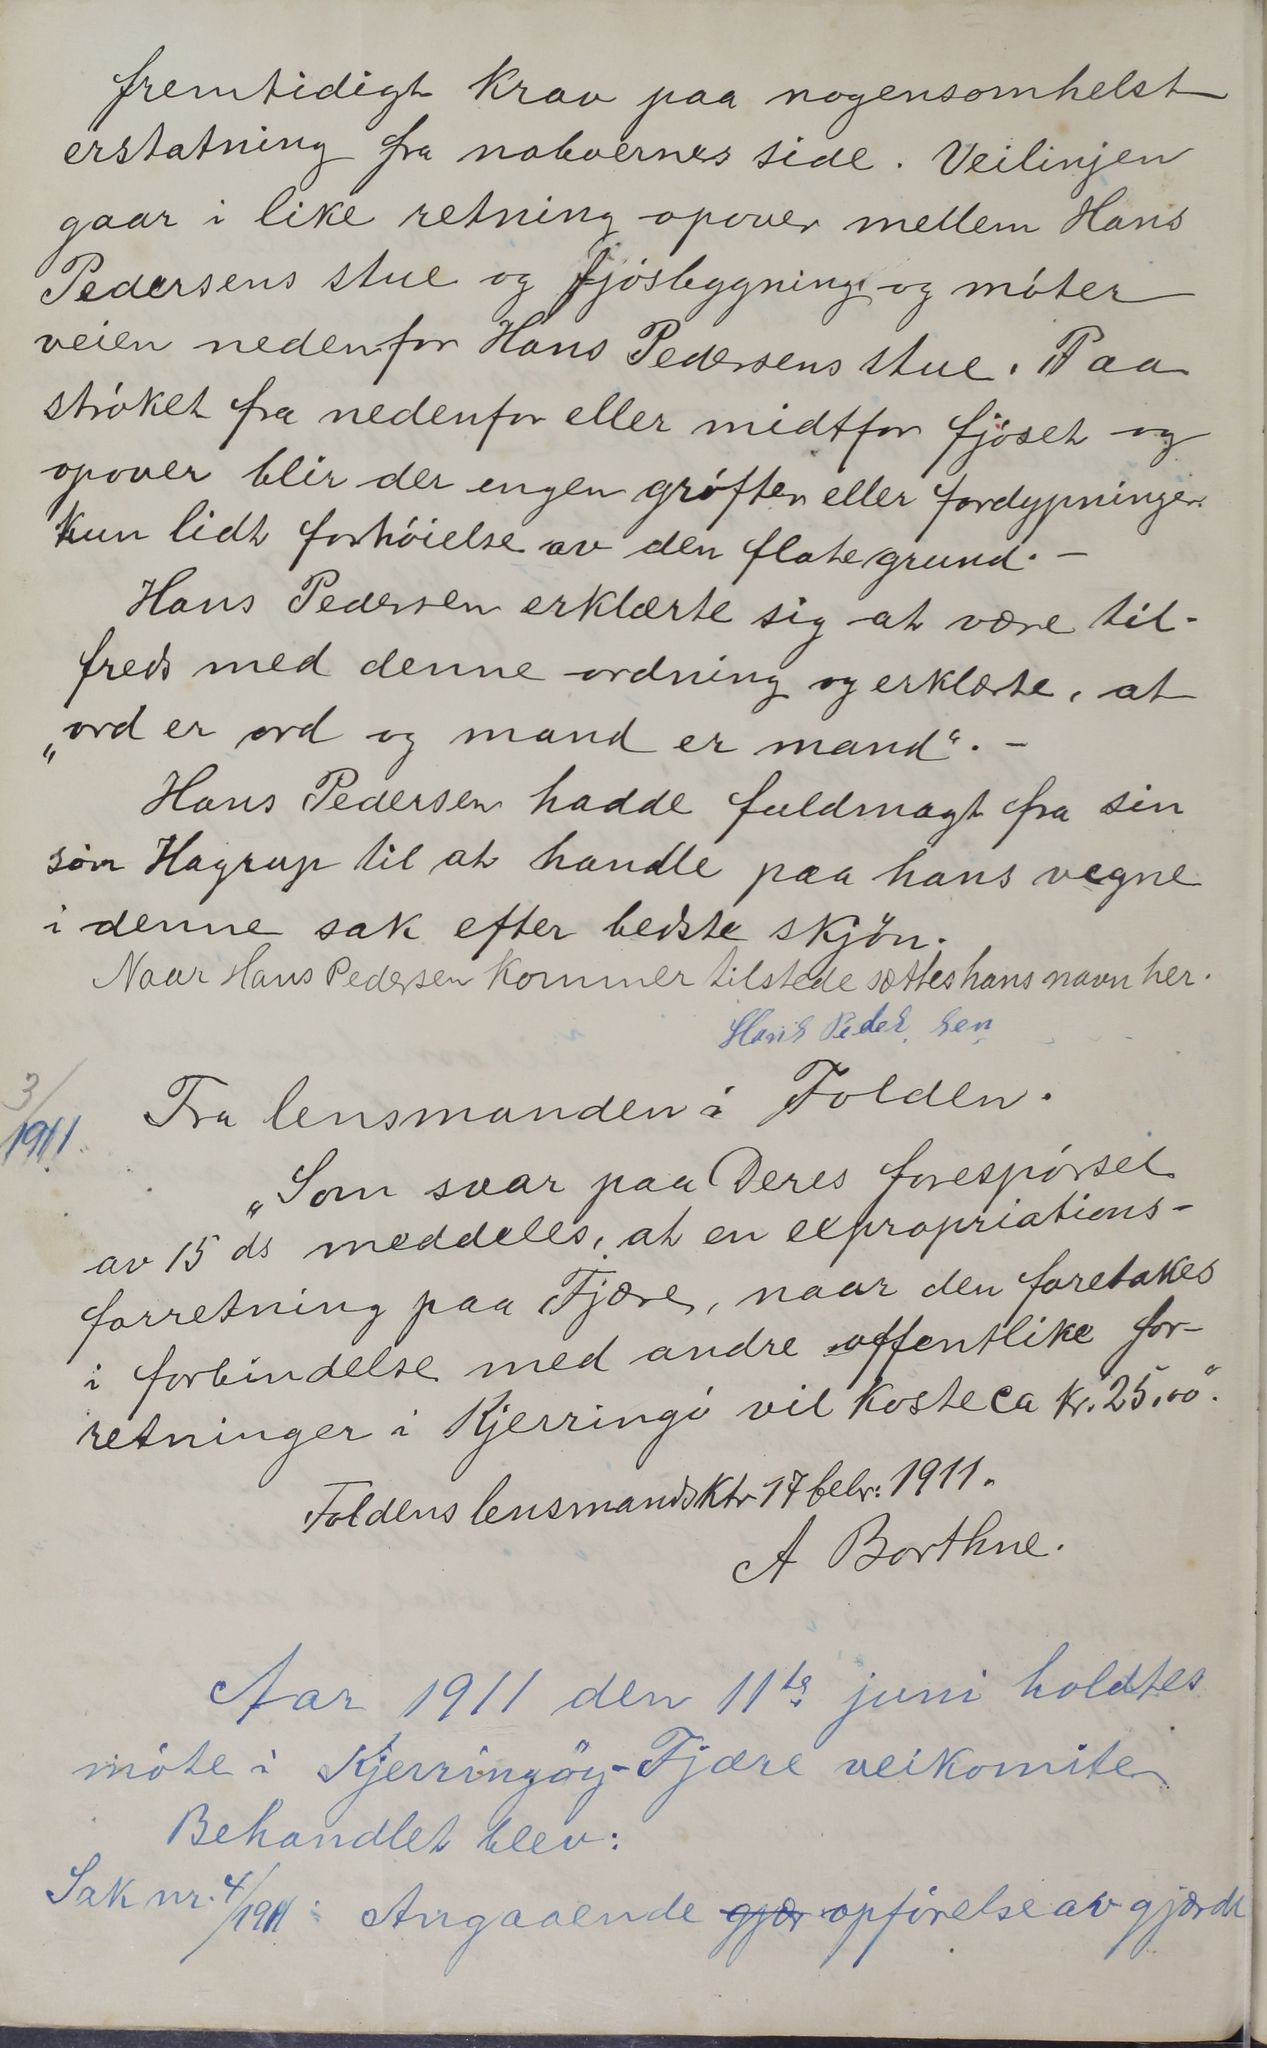 fremtidigt krav paa nogensomhelst
erstatning fra naboernes side. Veilinjen
gaar i like retning opover mellem Hans
Pedersens stue og fjösbygning og möter
veien nedenfor Hans Pedersens stue. Paa
ströket fra nedenfor eller midtfor fjöset og
opover blir der ingen gröfter eller fordypninger.
Kun lidt forhöielse av den flate grund. -
Hans Pedersen erklærte sig at være til-
freds med denne ordning og erklærte, at
„ord er ord og mand er mand“. -
Hans Pedersen hadde fuldmagt fra sin
sön Hagrup til at handle paa hans vegne
i denne sak efter bedste skjön.
Naar Hans Pedersen kommer tilstede sættes hans navn her.
Hans Peder sen
3/1911. Fra lensmanden i Folden.
„Som svar paa Deres forespörsel
av 15 ds meddeles, at en expropriations-
forretning paa Fjære, naar den foretakes
i forbindelse med andre offentlike for-
retninger i Kjerringö vil koste ca kr. 25,00“.
Foldens lensmandsktr 17 febr. 1911.
A Borthne.
Aar 1911 den 11te juni holdtes
möte i Kjerringöy-Fjære veikomite
Behandlet blev:
Sak nr. 4/1911: Angaaende gjær opförelse av gjærde